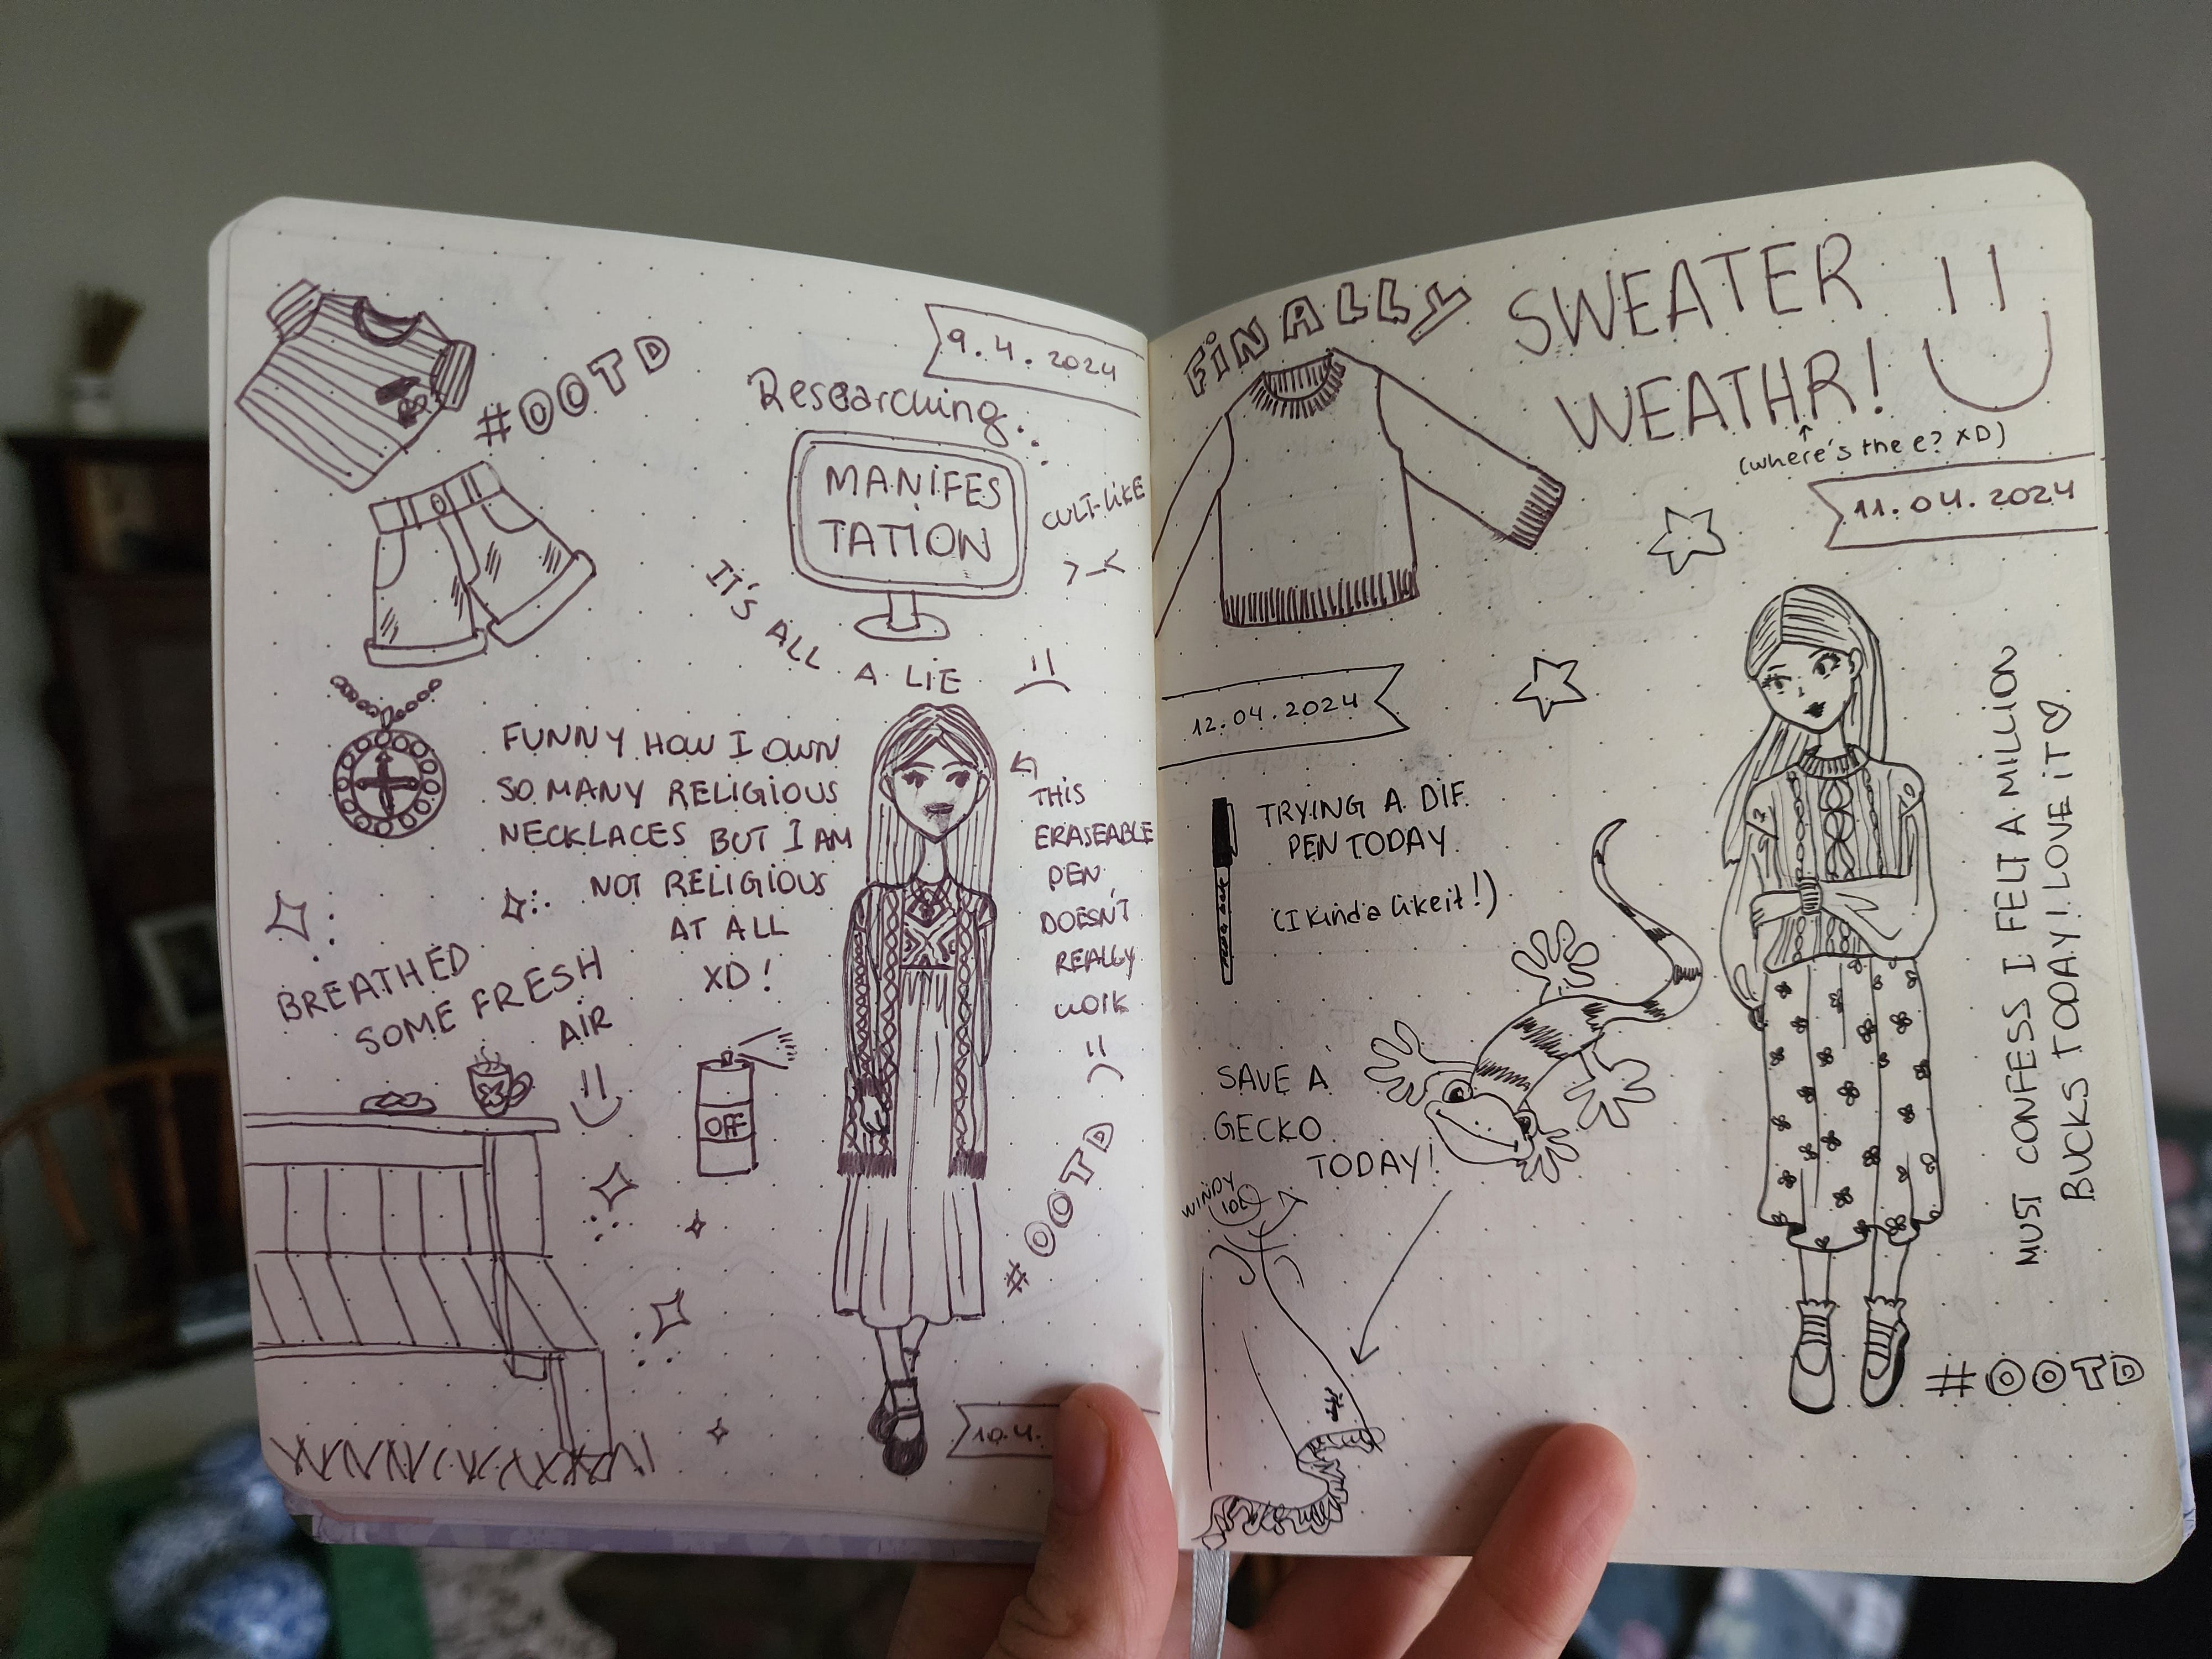 #OOTD
9.4.2024
Researching...
MANIFES
TATION
CULT-LIKE
>_<
IT'S ALL A LIE
FUNNY HOW I OWN
SO MANY RELIGIOUS
NECKLACES BUT I AM
NOT RELIGIOUS
AT ALL
XD!
THIS
ERASEABLE
PEN
DOESN'T
REALLY
WORK
BREATHED
SOME FRESH
AIR
OFF
#OOTD
10.4.
FINALLY
SWEATER
WEATHR!
(where's the e? XD)
11.04.2024
12.04.2024
TRYING A DIF.
PEN TODAY
(I kinda like it!)
SAVE A
GECKO
TODAY!
WINDY
MUST CONFESS I FELT A MILLION
BUCKS TODAY! I LOVE IT
#OOTD